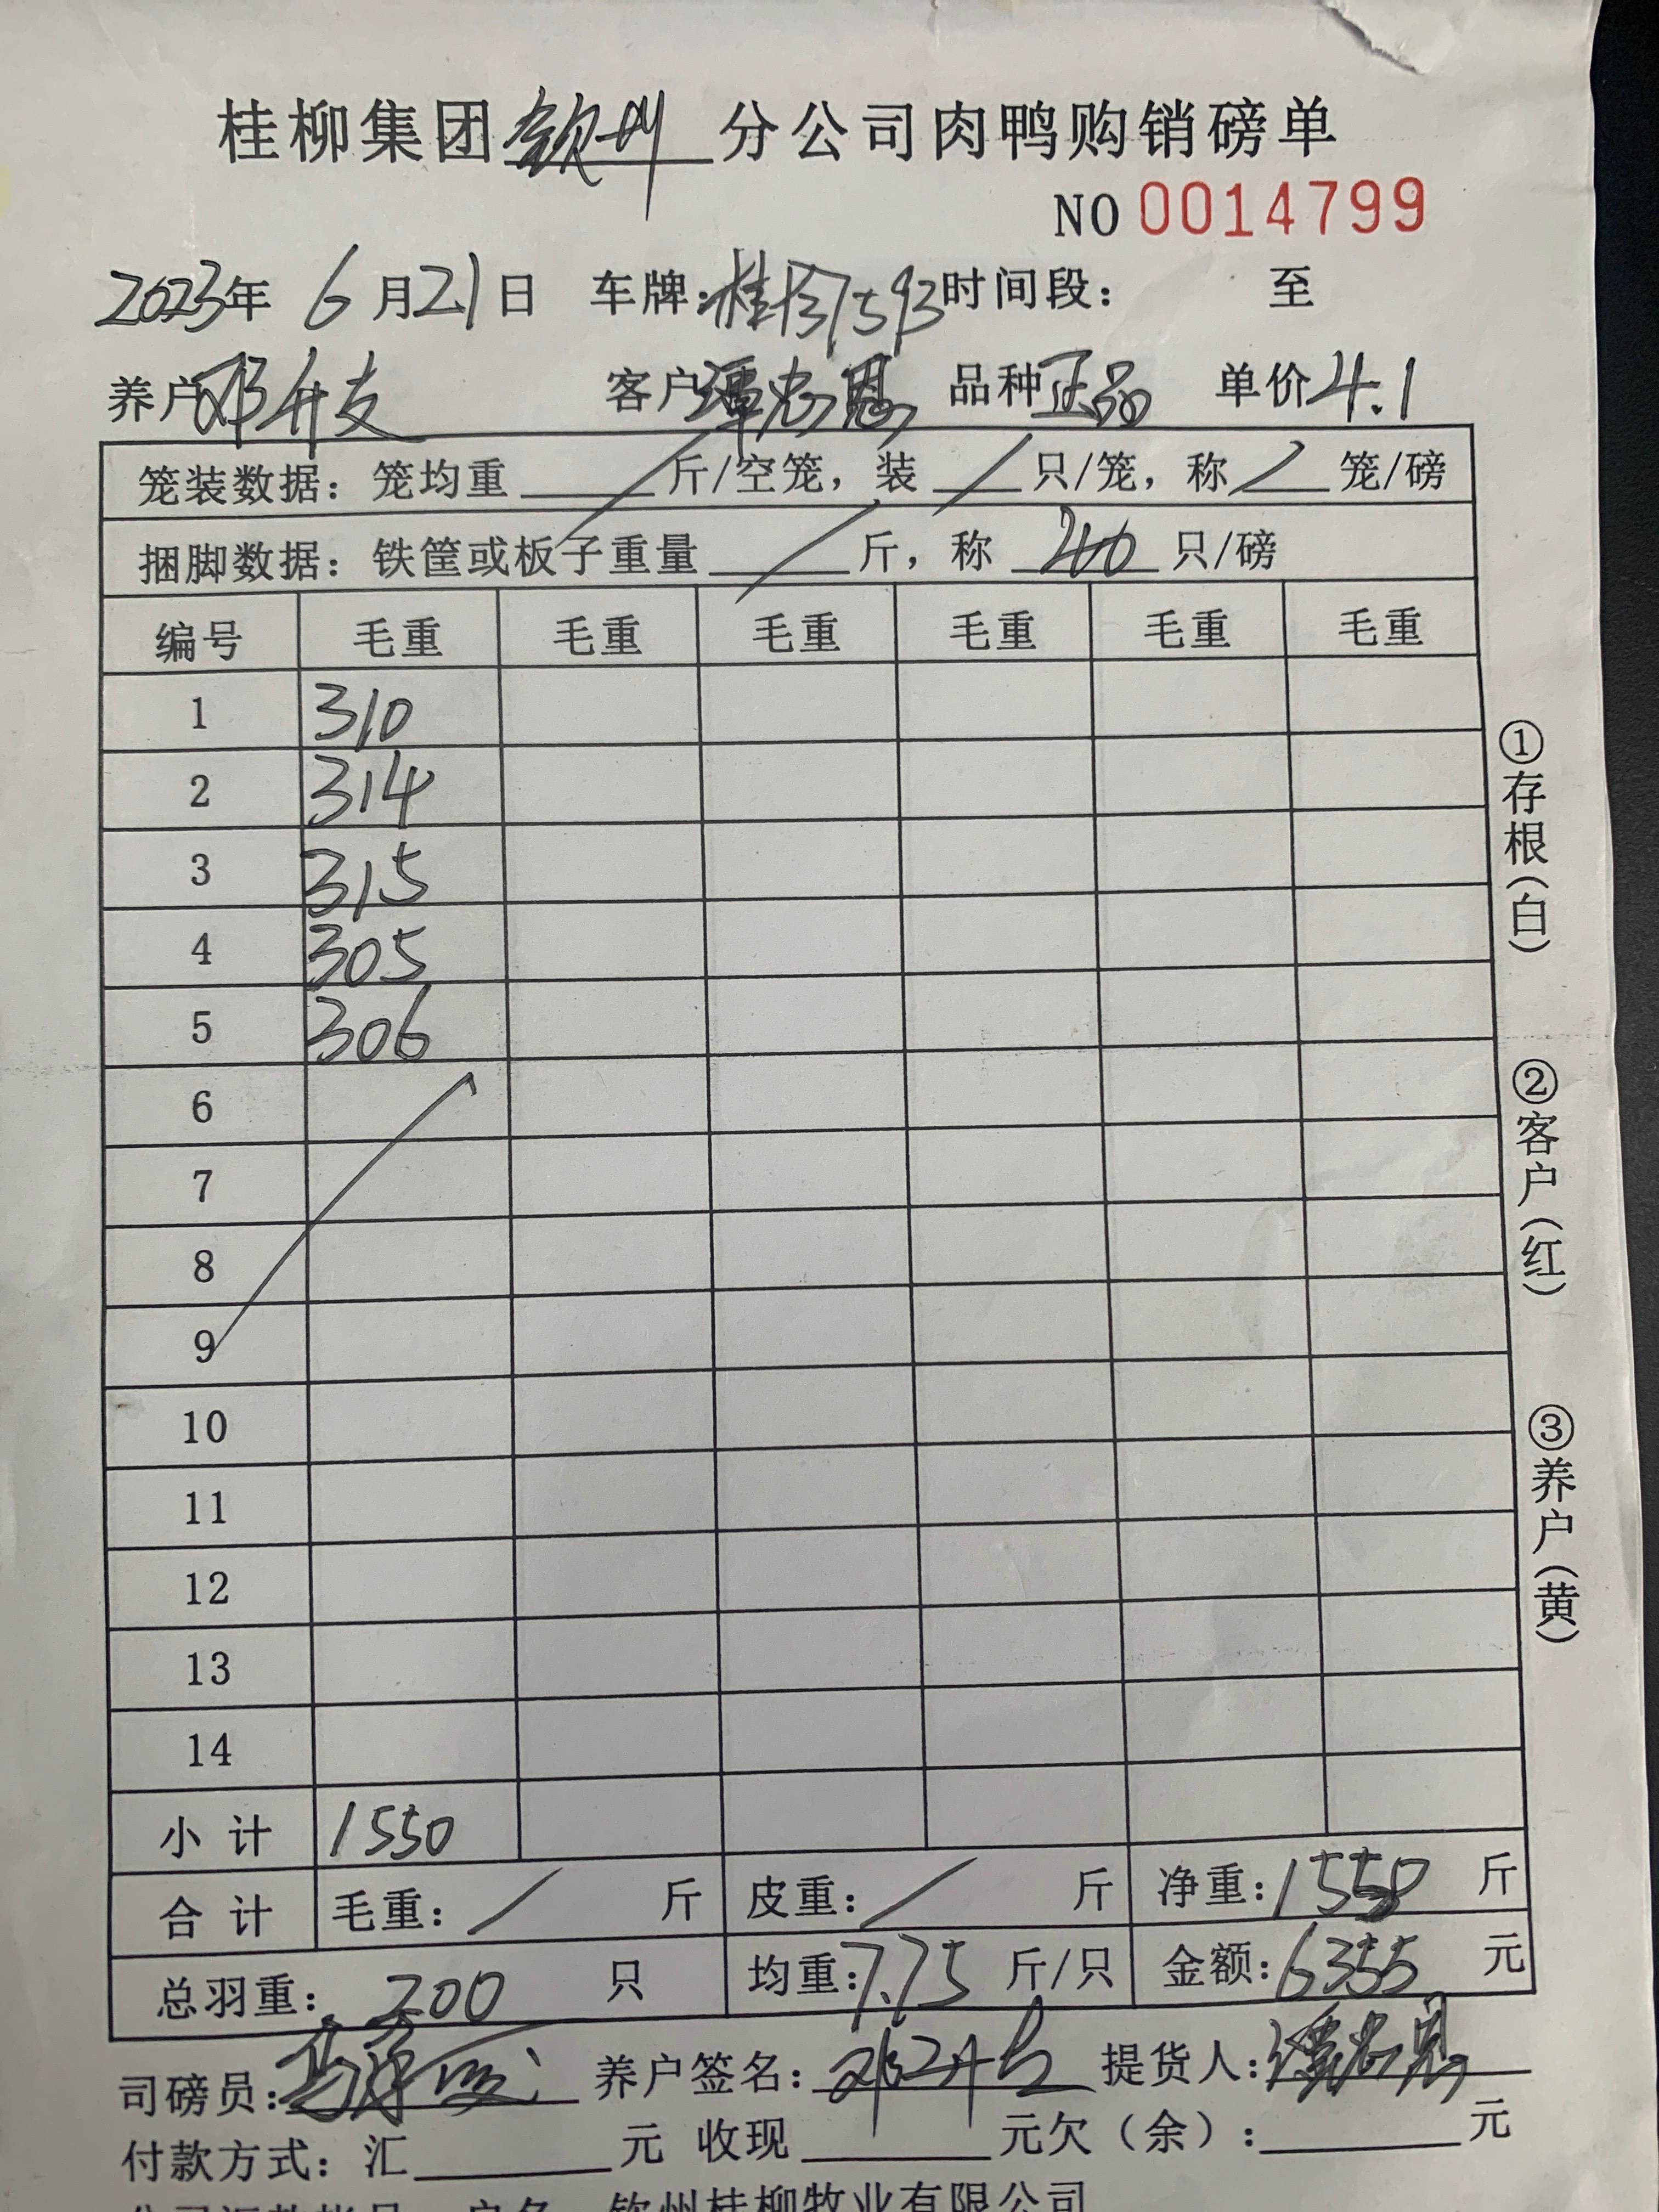 桂柳集团 钦州 分公司肉鸭购销磅单
NO 0014799
2023年 6月21日 车牌: 时间段: 至
养户 邓升支 客户 谭忠恩 品种 正品 单价 4.1
笼装数据: 笼均重 斤/空笼, 装 只/笼, 称 笼/磅
捆脚数据: 铁筐或板子重量 斤, 称 只/磅
编号 毛重 毛重 毛重 毛重 毛重 毛重
1 310
2 314
3 315
4 305
5 306
6
7
8
9
10
11
12
13
14
小计 1550
合计 毛重: 斤 皮重: 斤 净重: 1550 斤
总羽重: 200 只 均重: 7.75 斤/只 金额: 6355 元
司磅员: 养户签名: 提货人: 谭忠恩
付款方式: 汇 元 收现 元欠(余): 元
户名 钦州桂柳牧业有限公司
①存根(白)
②客户(红)
③养户(黄)